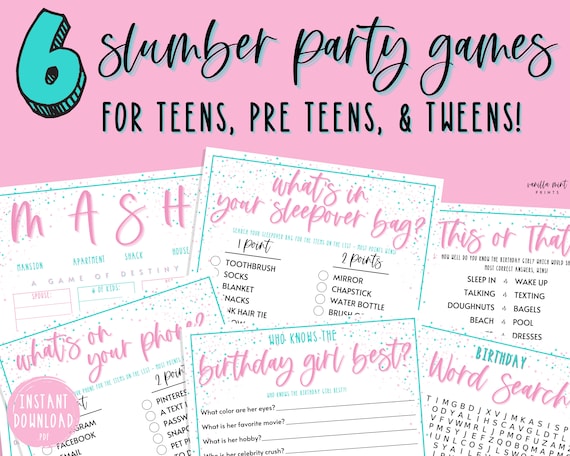 6 slumber party games
FOR TEENS, PRE TEENS, & TWEENS!
vanilla mint
PRINTS
M A S H
MANSION APARTMENT SHACK HOUSE
A GAME OF DESTINY
SPOUSE: # OF KIDS:
what's in
your sleepover bag?
SEARCH YOUR SLEEPOVER BAG FOR THE ITEMS ON THE LIST - MOST POINTS WINS!
1 POINT
TOOTHBRUSH
SOCKS
BLANKET
SNACKS
HAIR TIE
2 POINTS
MIRROR
CHAPSTICK
WATER BOTTLE
BRUSH OR
This or That
HOW WELL DO YOU KNOW THE BIRTHDAY GIRL? WHICH WOULD
MOST CORRECT ANSWERS, WINS!
SLEEP IN WAKE UP
TALKING TEXTING
DOUGHNUTS BAGELS
BEACH POOL
DRESSES
what's on
your phone?
PHONE FOR THE ITEMS ON THE LIST - MOST POINTS
2 POINT
PINTERES
A TEXT
PASSW
SNAP
PET PH
FACEBOOK
EMAIL
INSTANT
DOWNLOAD
.PDF
WHO KNOWS THE
birthday girl best?
WHO KNOWS THE BIRTHDAY GIRL BEST?
What color are her eyes?
What is her favorite movie?
What is her hobby?
Who is her celebrity crush?
BIRTHDAY
Word Search